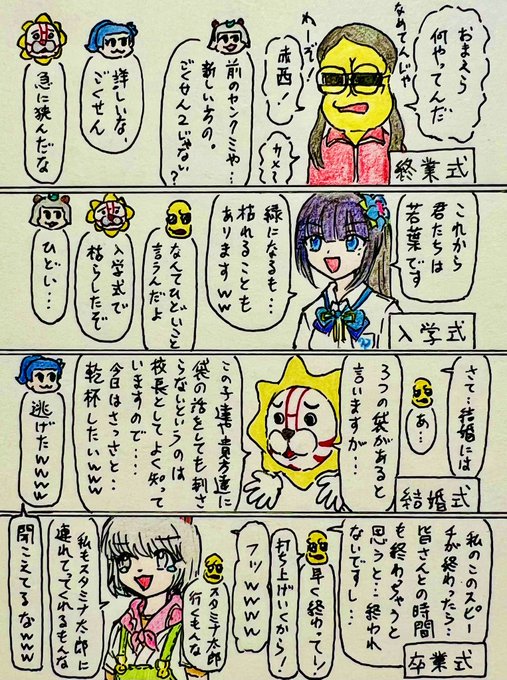 おまえら
何やってんだ
なめてんじゃ
ねーぞ!
赤西!
カメ〜
終業式
前のヤンクミや…
新しいもの。
ごくせん2じゃない?
詳しいな、
ごくせん
急に狭んだな
これから
君たちは
若葉です
緑になるも…
枯れることも
ありますww
入学式
なんてひどいこと
言うんだよ
入学式で
枯らしたぞ
ひどい…
さて…結婚には
あ…
3つの袋があると
言いますが…
結婚式
この子達や貴方達に
袋の話をしても刺さ
らないというのは
校長としてよく知って
いますので…
今日はさっさと…
乾杯したいwww
逃げたwwww
私のこのスピー
チが終わったら…
皆さんとの時間
も終わっちゃうと
思うと…終われ
ないですし…
卒業式
早く終わってー!
打ち上げいくから!
フッwwww
スタミナ太郎
行くもんな
私もスタミナ太郎に
連れてってくれるもんな
聞こえてるなwww